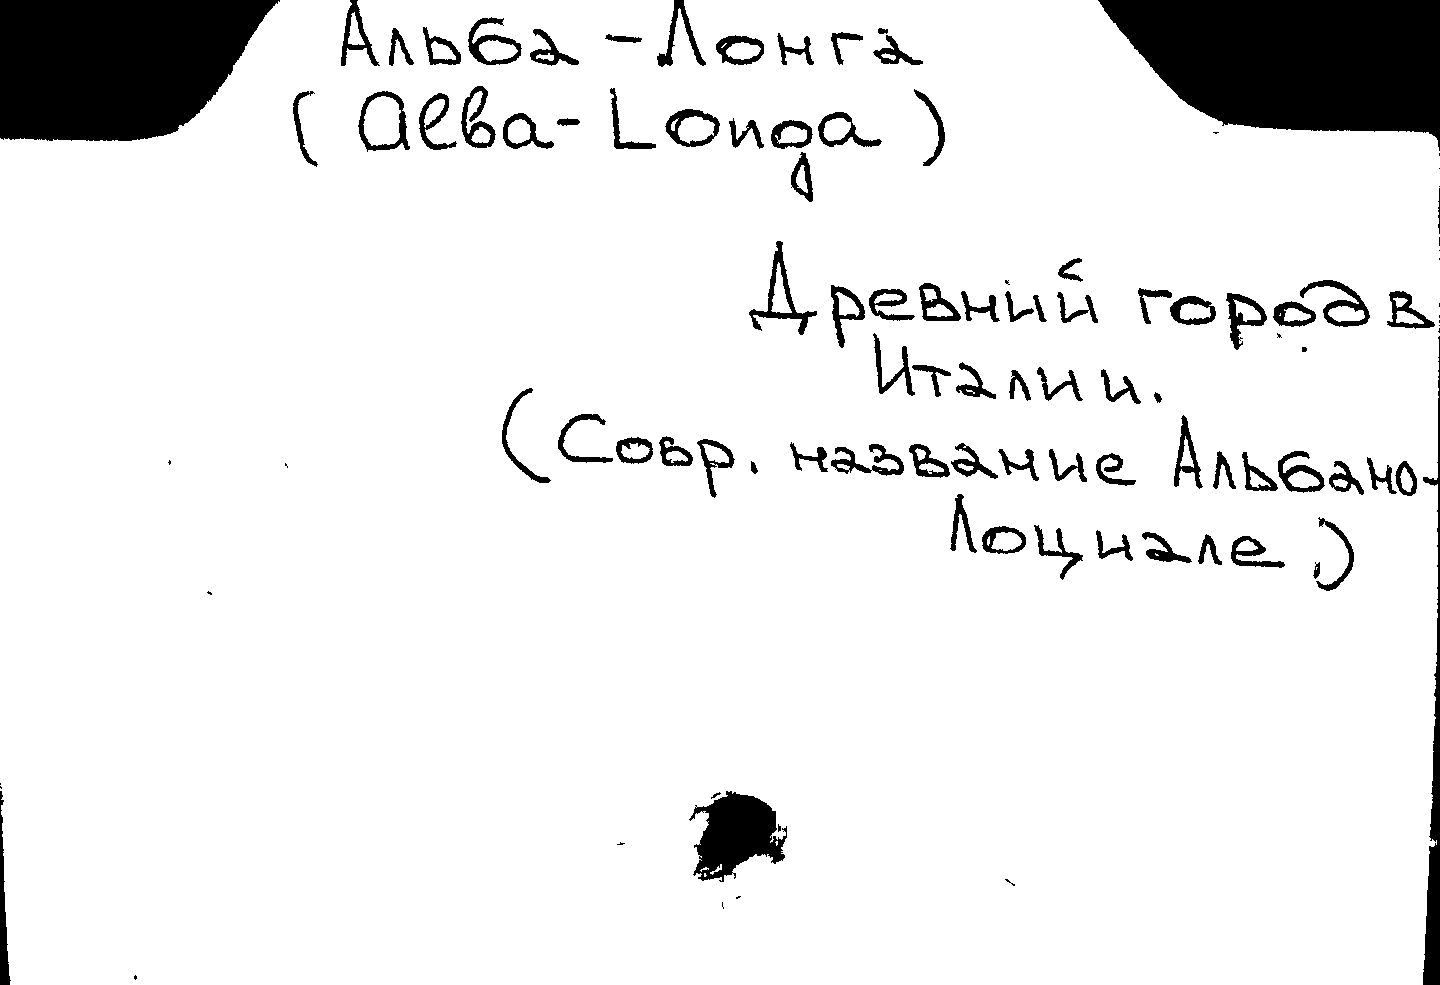 Альба-Лонга
(Alba-Longa)
Древний город в
Италии.
(Совр. название Альбано-
Лоциале.)